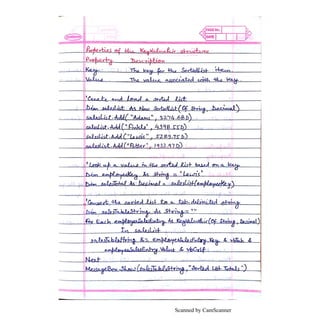 PAGE No.
DATE
Properties of the KeyValuePair structure
Property Description
Key The key for the SortedList item.
Value The value associated with the key.
'Create and load a sorted list
Dim salesList As New SortedList(Of String, Decimal)
salesList.Add("Adams", 3274.68D)
salesList.Add("Finkle", 4398.55D)
salesList.Add("Lewis", 5289.75D)
salesList.Add("Potter", 1933.97D)
'Look up a value in the sorted list based on a key
Dim employeeKey As String = "Lewis"
Dim salesTotal As Decimal = salesList(employeeKey)
'Convert the sorted list to a tab-delimited string
Dim salesTableString As String = ""
For Each employeeSalesEntry As KeyValuePair(Of String, Decimal)
In salesList
salesTableString &= employeeSalesEntry.Key & vbTab &
employeeSalesEntry.Value & vbCrLf
Next
MessageBox.Show(salesTableString, "Sorted List Totals")
Scanned by CamScanner